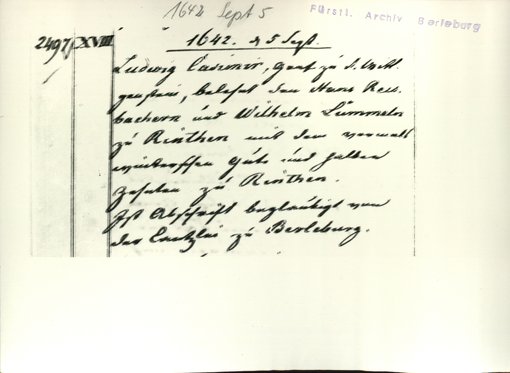 1642 Sept 5
Fürstl. Archiv Berleburg
2497/XVIII
1642. d 5 Sept.
Ludwig Casimir, Graf zu S. Witt-
genstein, belehnt den Hans
bachern und Wilhelm Lümmeln
zu Rinthen mit dem vormals
Gute und halben
Zehnten zu Rinthen.
Ist Abschrift beglaubigt von
der Cantzlei zu Berleburg.